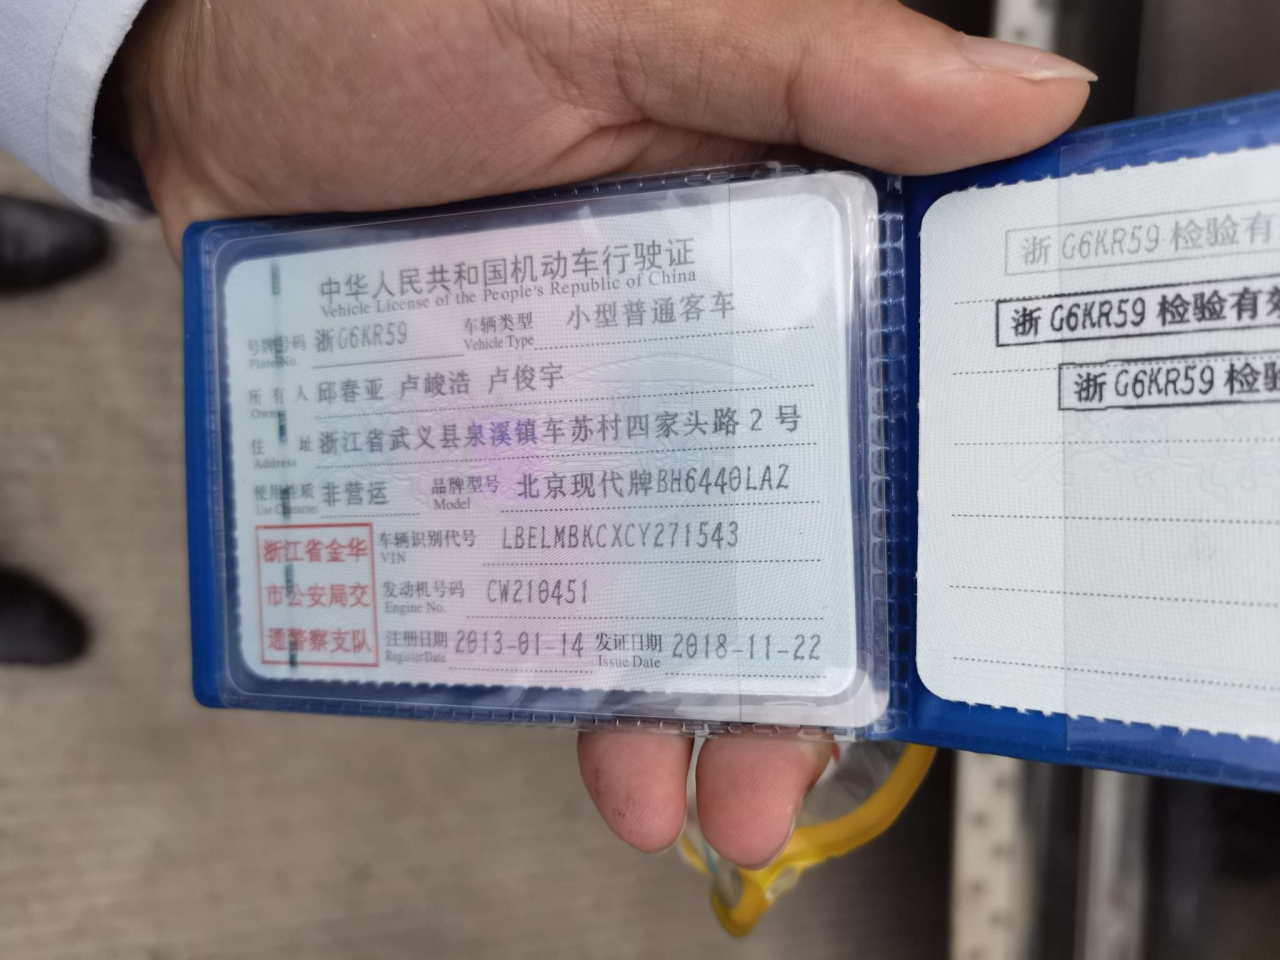 中华人民共和国机动车行驶证
Vehicle License of the People's Republic of China
号牌号码 浙G6KR59 车辆类型 小型普通客车
Plate No. Vehicle Type
所有人 邱春亚 卢峻浩 卢俊宇
Owner
住址 浙江省武义县泉溪镇车苏村四家头路2号
Address
使用性质 非营运 品牌型号 北京现代牌BH6440LAZ
Use Character Model
浙江省金华
市公安局交
通警察支队
车辆识别代号 LBELMBKCXCY271543
VIN
发动机号码 CW210451
Engine No.
注册日期 2013-01-14 发证日期 2018-11-22
Register Date Issue Date
浙G6KR59 检验有
浙G6KR59 检验有效
浙G6KR59 检验